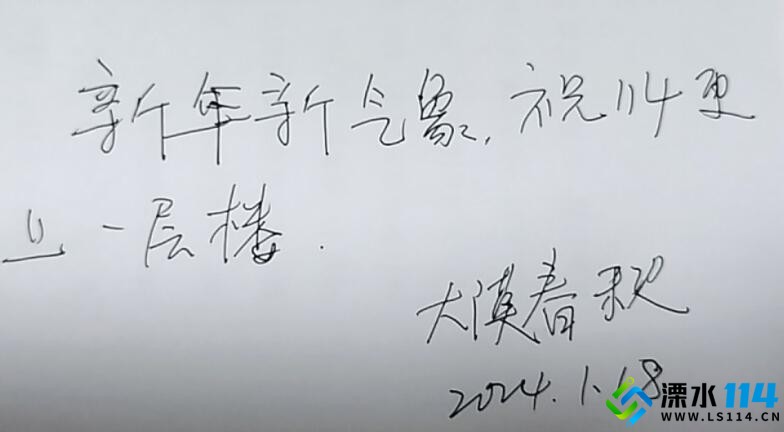 新年新气象,祝114更
上一层楼.
大漠春秋
2024.1.18
溧水114
WWW.LS114.CN